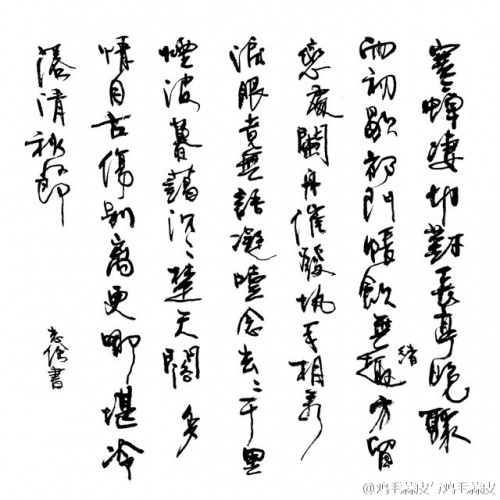 寒蟬淒切對長亭晚驟
雨初歇都門帳飲無趣緒方留
戀處闌舟催發執手相看
淚眼竟無語凝噎念去〻千里
煙波暮藹沉〻楚天闊 多
情自古傷別離更哪堪冷
落清秋節
書
@鸡毛蒜皮与鸡毛蒜皮